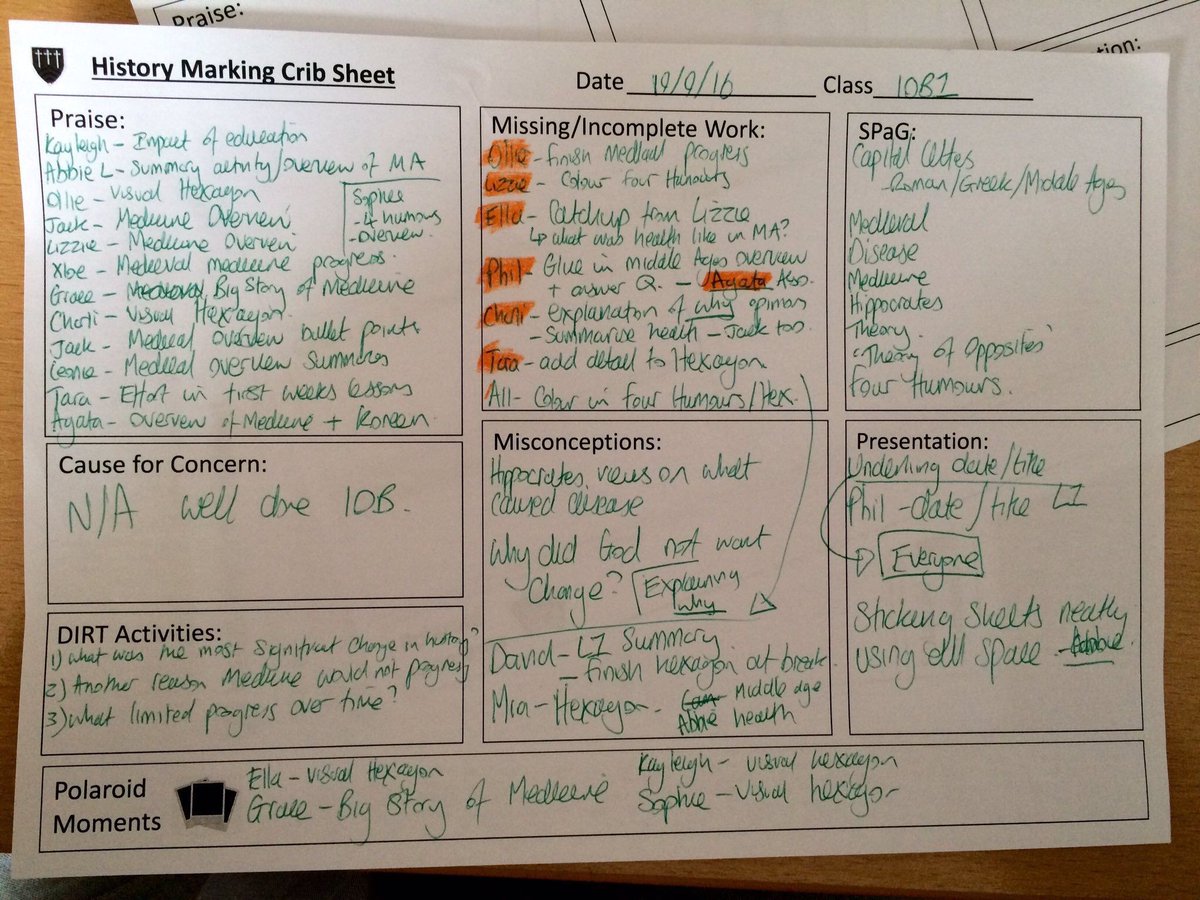 Praise:
tion:
History Marking Crib Sheet
Date 19/9/16 Class 10B1
Praise:
Kayleigh - Impact of education
Abbie L - Summary activity/overview of MA
Ollie - Visual Hexagon
Jack - Medicine Overview
Lizzie - Medicine Overview
Sophie
- 4 humours
- overview.
Medieval medicine progress.
Grace - Medieval Big Story of Medicine
Charli - Visual Hexagon.
Jack - Medieval overview bullet points
Leonie - Medieval overview Summaries
Tara - Effort in first weeks lessons
Agata - Overview of Medicine + Korean.
Missing/Incomplete Work:
Ollie - finish Medieval progress
Lizzie - Colour four Humours
Ella - Catchup from Lizzie
↳ what was health like in MA?
Phil - Glue in middle Ages overview
+ answer Q. - Agata Also.
Charli - explanation of why opinion
- Summarise health - Jack too.
Tara - add detail to Hexagon
All - Colour in four Humours/Hex.
SPaG:
Capital letters
- Roman/Greek/Middle Ages
Medieval
Disease
Medicine
Hippocrates
Theory.
"Theory of Opposites"
Four Humours.
Cause for Concern:
N/A well done 10B.
Misconceptions:
Hippocrates views on what
caused disease
Why did God not want
Change?
Explaining
why
David - LI Summary
- finish hexagon at break
Mia - Hexagon.
Middle age
Abbie health
Presentation:
Underling date/title
Phil - date/title LI
Everyone
Sticking sheets neatly
using all space - Abbie.
DIRT Activities:
1) What was the most significant change in history?
2) Another reason Medicine would not progress
3) What limited progress over time?
Polaroid
Moments
Ella - Visual Hexagon
Grace - Big Story of Medicine
Kayleigh - visual hexagon
Sophie - Visual hexagon